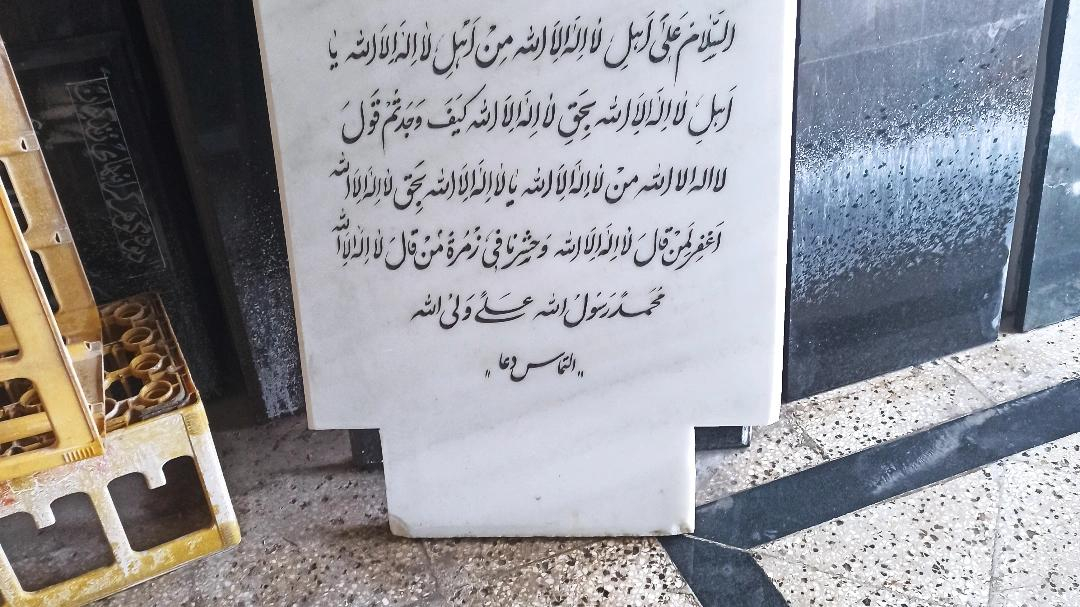 السَّلامُ عَلیٰ اَهلِ لا اِلهَ اِلاَ الله مِنْ اَهْلِ لا اِلهَ اِلاَ الله یا
اَهلِ لا اِلهَ اِلاَ الله بِحَقِ لا اِلهَ اِلاَ الله کَیفَ وَجَدتُمْ قَولَ
لا اله الا الله مِنْ لا اِلهَ اِلاَ الله یا لا اِلهَ اِلاَ الله بِحَقِ لا اِلهَ اِلاَ الله
اَغفِر لِمَنْ قالَ لا اِلهَ اِلاَ الله وَحشِرنا فی زُمرَةُ مَنْ قالَ لا اِلهَ اِلاَ الله
مُحَمَدً رَسَولُ الله عَلیً وَلیُ الله
"التماس دعا"